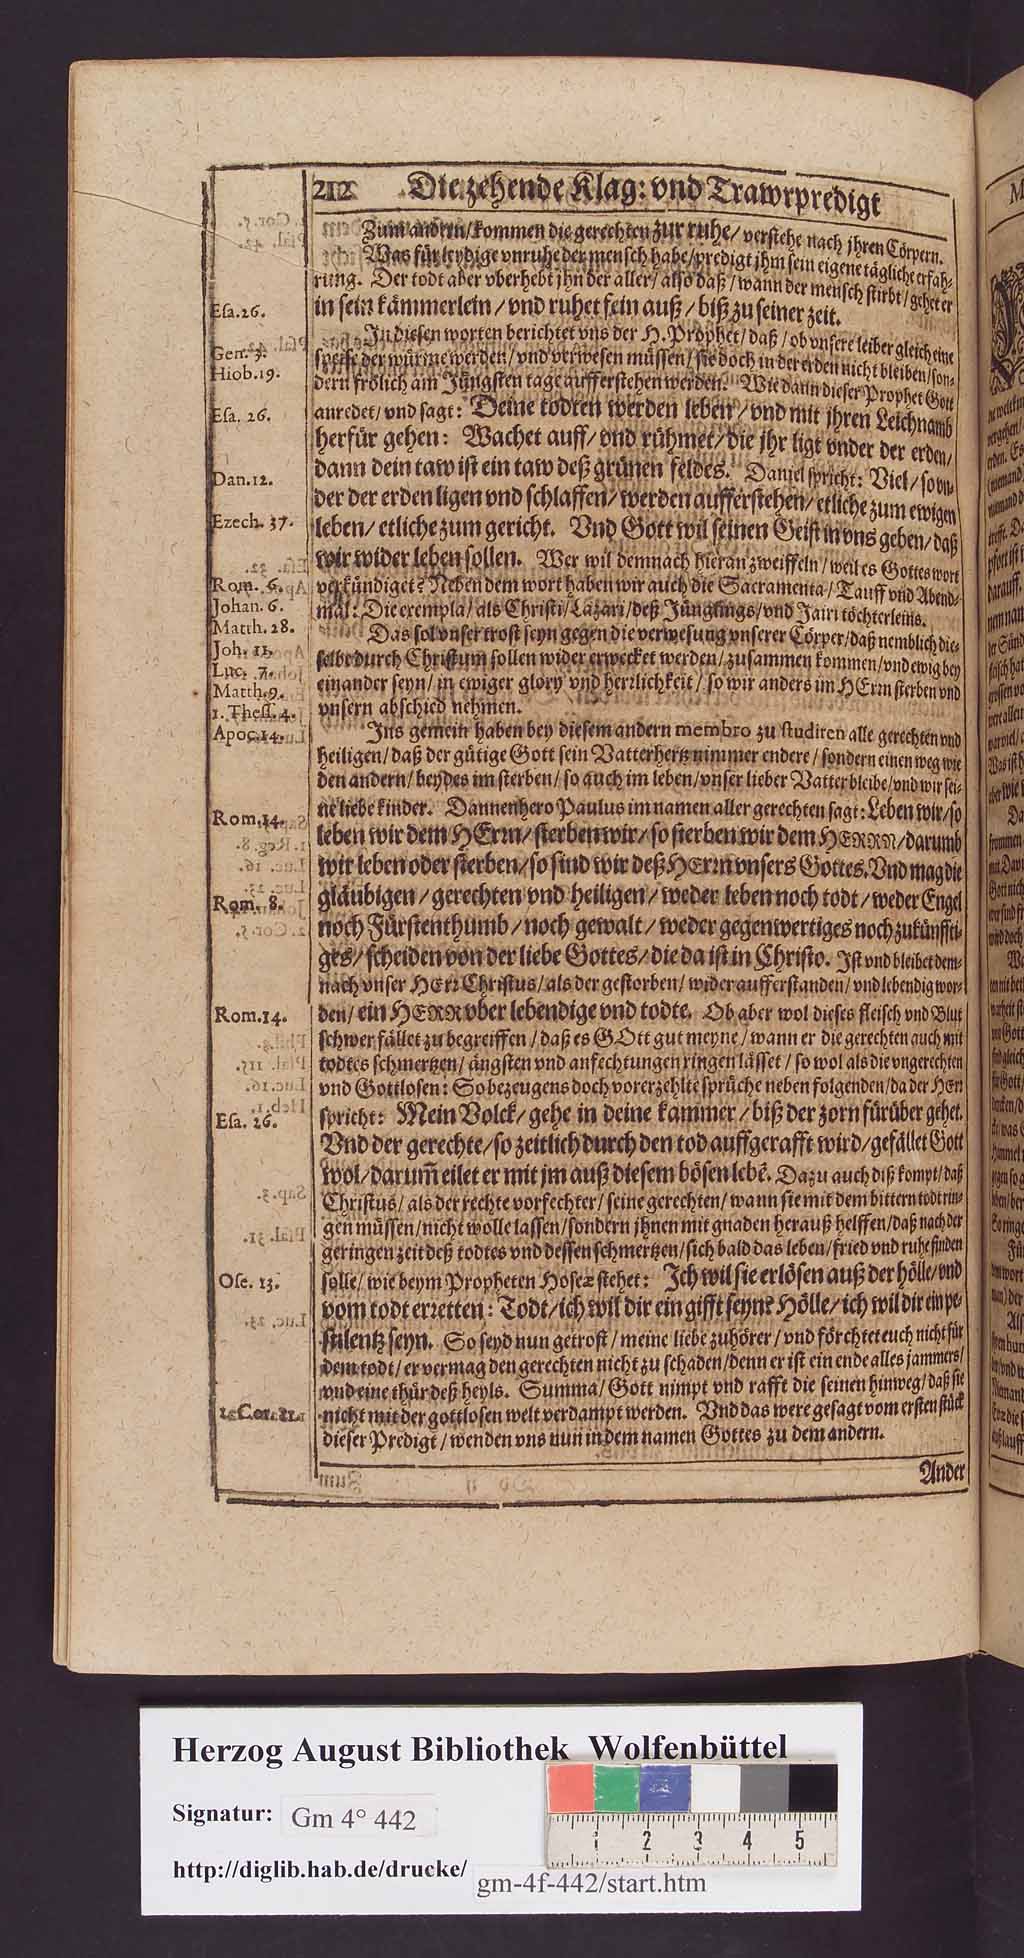 212 Die zehende Klag: vnd Trawrpredigt
Zum andern/ kommen die gerechten zur ruhe/ verstehe nach jhren Cörpern.
Was für leydige vnruhe der mensch habe/ predigt jhm sein eigene tägliche erfah-
rung. Der todt aber vberhebt jhn der aller/ also daß/ wann der mensch stirbt/ gehet er
Esa. 26.
in sein kämmerlein/ vnd ruhet fein auß/ biß zu seiner zeit.
In diesen worten berichtet vns der H. Prophet/ daß/ ob vnsere leiber gleich eine
Gen. 3.
speise der würme werden/ vnd verwesen müssen/ sie doch in der erden nicht bleiben/ son-
Hiob. 19.
dern frölich am Jüngsten tage aufferstehen werden. Wie dann dieser Prophet Gott
Esa. 26.
anredet/ vnd sagt: Deine todten werden leben/ vnd mit jhren Leichnamb
herfür gehen: Wachet auff/ vnd rühmet/ die jhr ligt vnder der erden/
dann dein taw ist ein taw deß grünen feldes. Daniel spricht: Viel/ so vn-
Dan. 12.
der der erden ligen vnd schlaffen/ werden aufferstehen/ etliche zum ewigen
Ezech. 37.
leben/ etliche zum gericht. Vnd Gott wil seinen Geist in vns geben/ daß
wir wider leben sollen. Wer wil demnach hieran zweiffeln/ weil es Gottes wort
Rom. 6.
verkündiget? Neben dem wort haben wir auch die Sacramenta/ Tauff vnd Abend-
Johan. 6.
mal: Die exempla/ als Christi/ Lazari/ deß Jünglings/ vnd Jairi töchterleins.
Matth. 28.
Das sol vnser trost seyn gegen die verwesung vnserer Cörper/ daß nemblich die-
Joh. 11.
selbe durch Christum sollen wider erwecket werden/ zusammen kommen/ vnd ewig bey
Luc. 7.
einander seyn/ in ewiger glory vnd herrlichkeit/ so wir anders im HErrn sterben vnd
Matth. 9.
1. Thess. 4.
vnsern abschied nehmen.
Apoc. 14.
Ins gemein haben bey diesem andern membro zu studiren alle gerechten vnd
heiligen/ daß der gütige Gott sein Vatterhertz nimmer endere/ sondern einen weg wie
den andern/ beydes im sterben/ so auch im leben/ vnser lieber Vatter bleibe/ vnd wir sei-
ne liebe kinder. Dannenhero Paulus im namen aller gerechten sagt: Leben wir/ so
Rom. 14.
leben wir dem HErrn/ sterben wir/ so sterben wir dem HERRN/ darumb
wir leben oder sterben/ so sind wir deß HErrn vnsers Gottes. Vnd mag die
gläubigen/ gerechten vnd heiligen/ weder leben noch todt/ weder Engel
Rom. 8.
noch Fürstenthumb/ noch gewalt/ weder gegenwertiges noch zukünffti-
ges/ scheiden von der liebe Gottes/ die da ist in Christo. Ist vnd bleibet dem-
nach vnser HErr Christus/ als der gestorben/ wider aufferstanden/ vnd lebendig wor-
Rom. 14.
den/ ein HERR vber lebendige vnd todte. Ob aber wol dieses fleisch vnd Blut
schwer fället zu begreiffen/ daß es GOtt gut meyne/ wann er die gerechten auch mit
todtes schmertzen/ ängsten vnd anfechtungen ringen lässet/ so wol als die vngerechten
vnd Gottlosen: So bezeugens doch vorerzehlte sprüche neben folgenden/ da der HErr
Esa. 26.
spricht: Mein Volck/ gehe in deine kammer/ biß der zorn fürüber gehet.
Vnd der gerechte/ so zeitlich durch den tod auffgerafft wird/ gefället Gott
wol/ darum̃ eilet er mit jm auß diesem bösen lebẽ. Dazu auch diß kompt/ daß
Christus/ als der rechte vorfechter/ seine gerechten/ wann sie mit dem bittern todt rin-
gen müssen/ nicht wolle lassen/ sondern jhnen mit gnaden herauß helffen/ daß nach der
geringen zeit deß todtes vnd dessen schmertzen/ sich bald das leben/ fried vnd ruhe finden
Ose. 13.
solle/ wie beym Propheten Hoseæ stehet: Ich wil sie erlösen auß der hölle/ vnd
vom todt erretten: Todt/ ich wil dir ein gifft seyn? Hölle/ ich wil dir ein pe-
stilentz seyn. So seyd nun getrost/ meine liebe zuhörer/ vnd förchtet euch nicht für
dem todt/ er vermag den gerechten nicht zu schaden/ denn er ist ein ende alles jammers/
vnd eine thür deß heyls. Summa/ Gott nimpt vnd rafft die seinen hinweg/ daß sie
1. Cor. 11.
nicht mit der gottlosen welt verdampt werden. Vnd das were gesagt vom ersten stück
dieser Predigt/ wenden vns nun in dem namen Gottes zu dem andern.
Ander
Herzog August Bibliothek Wolfenbüttel
Signatur: Gm 4° 442
1 2 3 4 5
http://diglib.hab.de/drucke/ gm-4f-442/start.htm